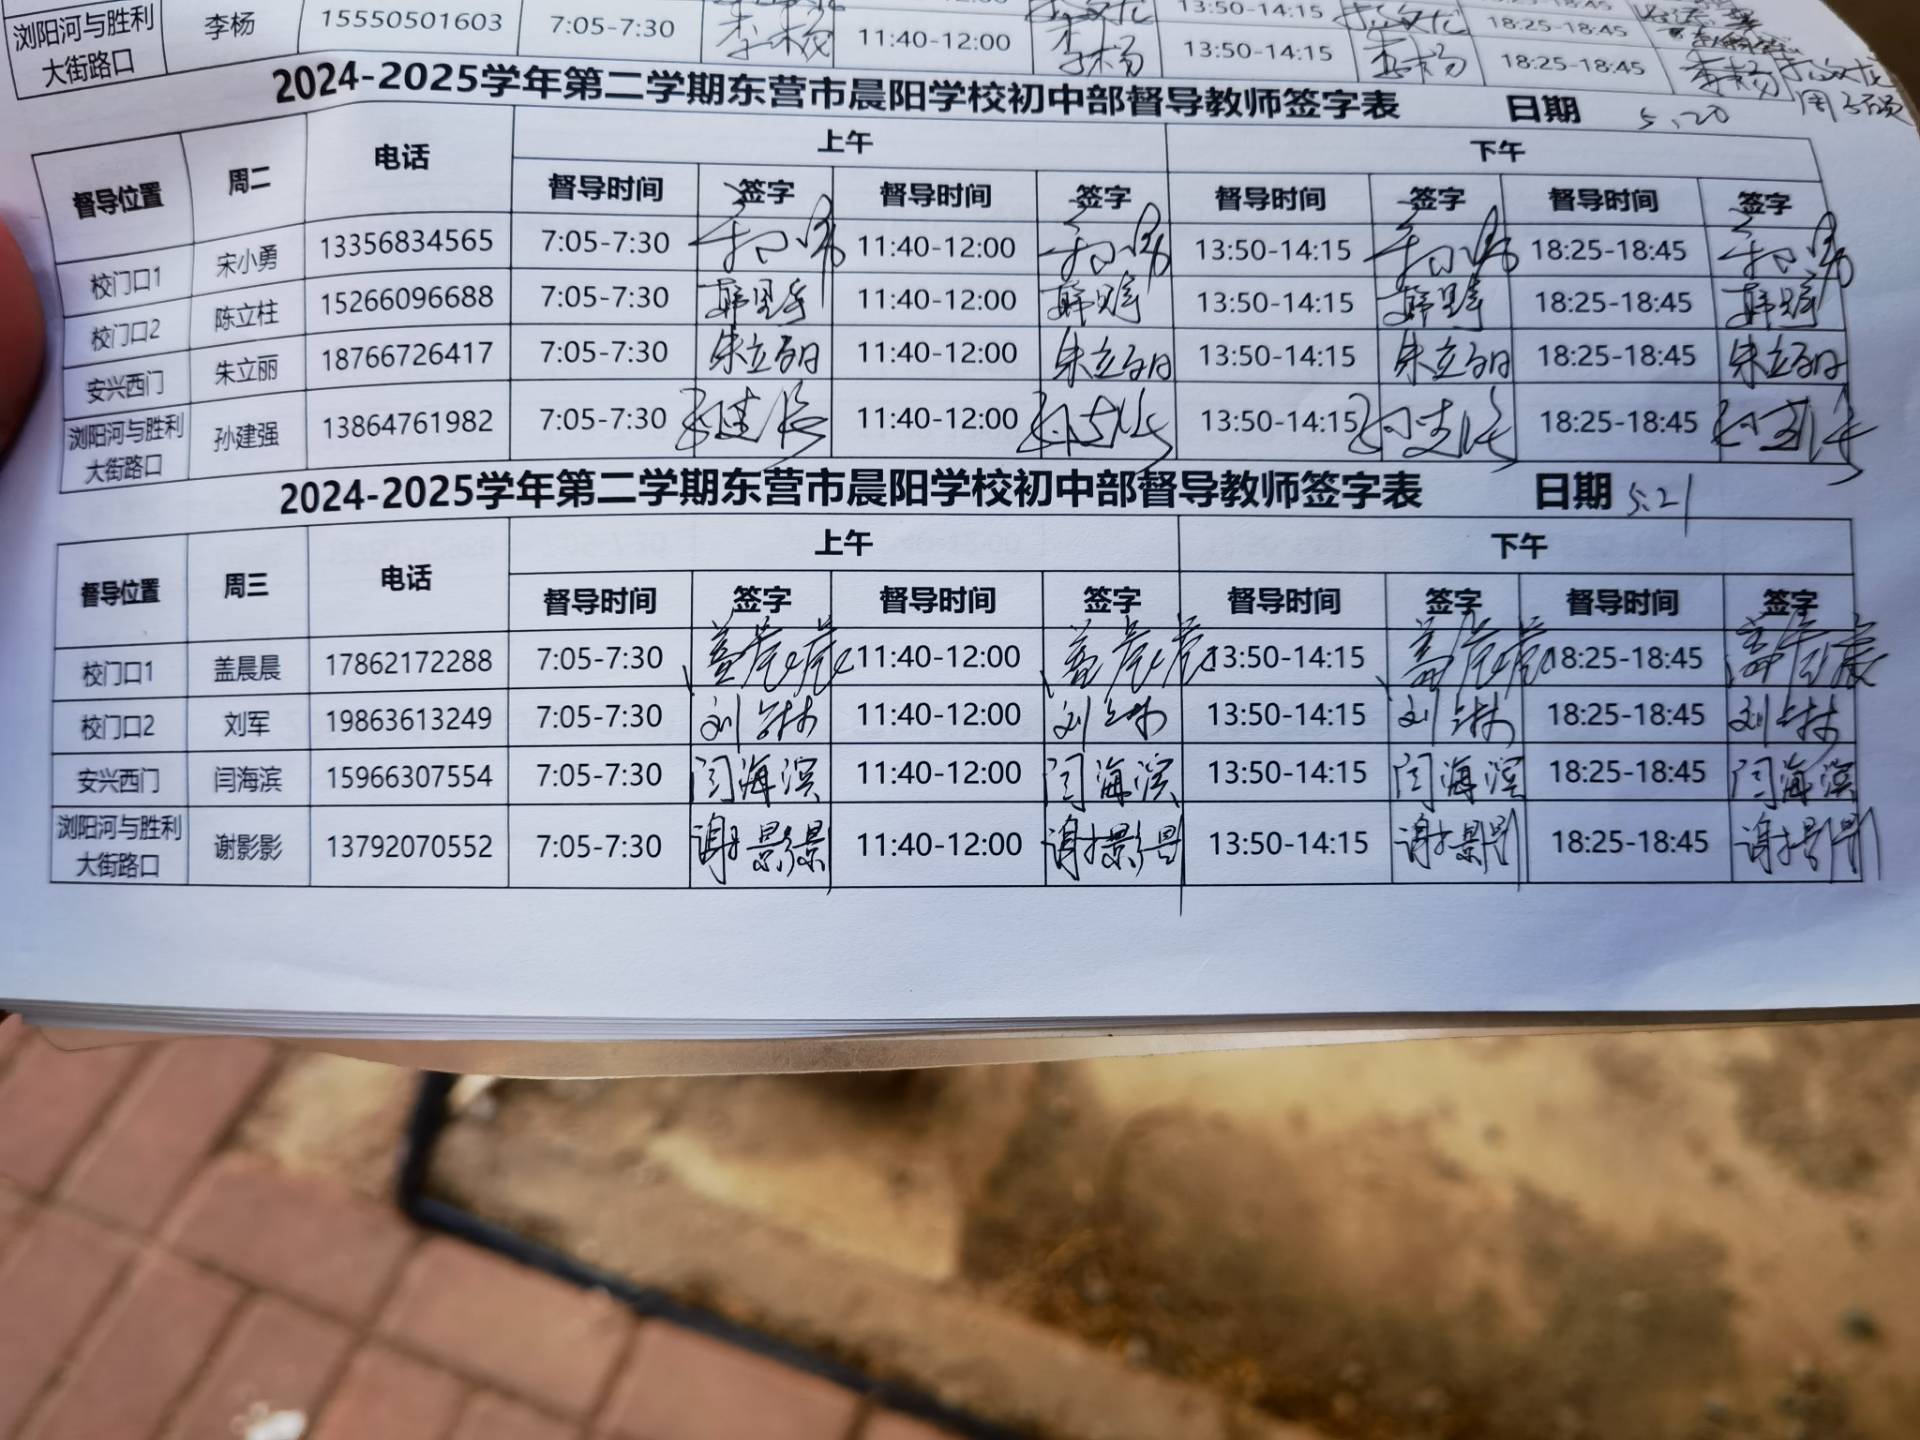 浏阳河与胜利大街路口 李杨 15550501603 7:05-7:30 11:40-12:00 李杨 13:50-14:15 李杨 18:25-18:45 李杨
2024-2025学年第二学期东营市晨阳学校初中部督导教师签字表 日期 5.20
督导位置 周二 电话 上午 下午
督导时间 签字 督导时间 签字 督导时间 签字 督导时间 签字
校门口1 宋小勇 13356834565 7:05-7:30 11:40-12:00 13:50-14:15 18:25-18:45
校门口2 陈立柱 15266096688 7:05-7:30 11:40-12:00 13:50-14:15 18:25-18:45
安兴西门 朱立丽 18766726417 7:05-7:30 朱立丽 11:40-12:00 朱立丽 13:50-14:15 朱立丽 18:25-18:45 朱立丽
浏阳河与胜利大街路口 孙建强 13864761982 7:05-7:30 孙建强 11:40-12:00 孙建强 13:50-14:15 孙建强 18:25-18:45 孙建强
2024-2025学年第二学期东营市晨阳学校初中部督导教师签字表 日期 5.21
督导位置 周三 电话 上午 下午
督导时间 签字 督导时间 签字 督导时间 签字 督导时间 签字
校门口1 盖晨晨 17862172288 7:05-7:30 盖晨晨 11:40-12:00 盖晨晨 13:50-14:15 盖晨晨 18:25-18:45 盖晨晨
校门口2 刘军 19863613249 7:05-7:30 11:40-12:00 13:50-14:15 18:25-18:45
安兴西门 闫海滨 15966307554 7:05-7:30 闫海滨 11:40-12:00 闫海滨 13:50-14:15 闫海滨 18:25-18:45 闫海滨
浏阳河与胜利大街路口 谢影影 13792070552 7:05-7:30 谢影影 11:40-12:00 谢影影 13:50-14:15 谢影影 18:25-18:45 谢影影